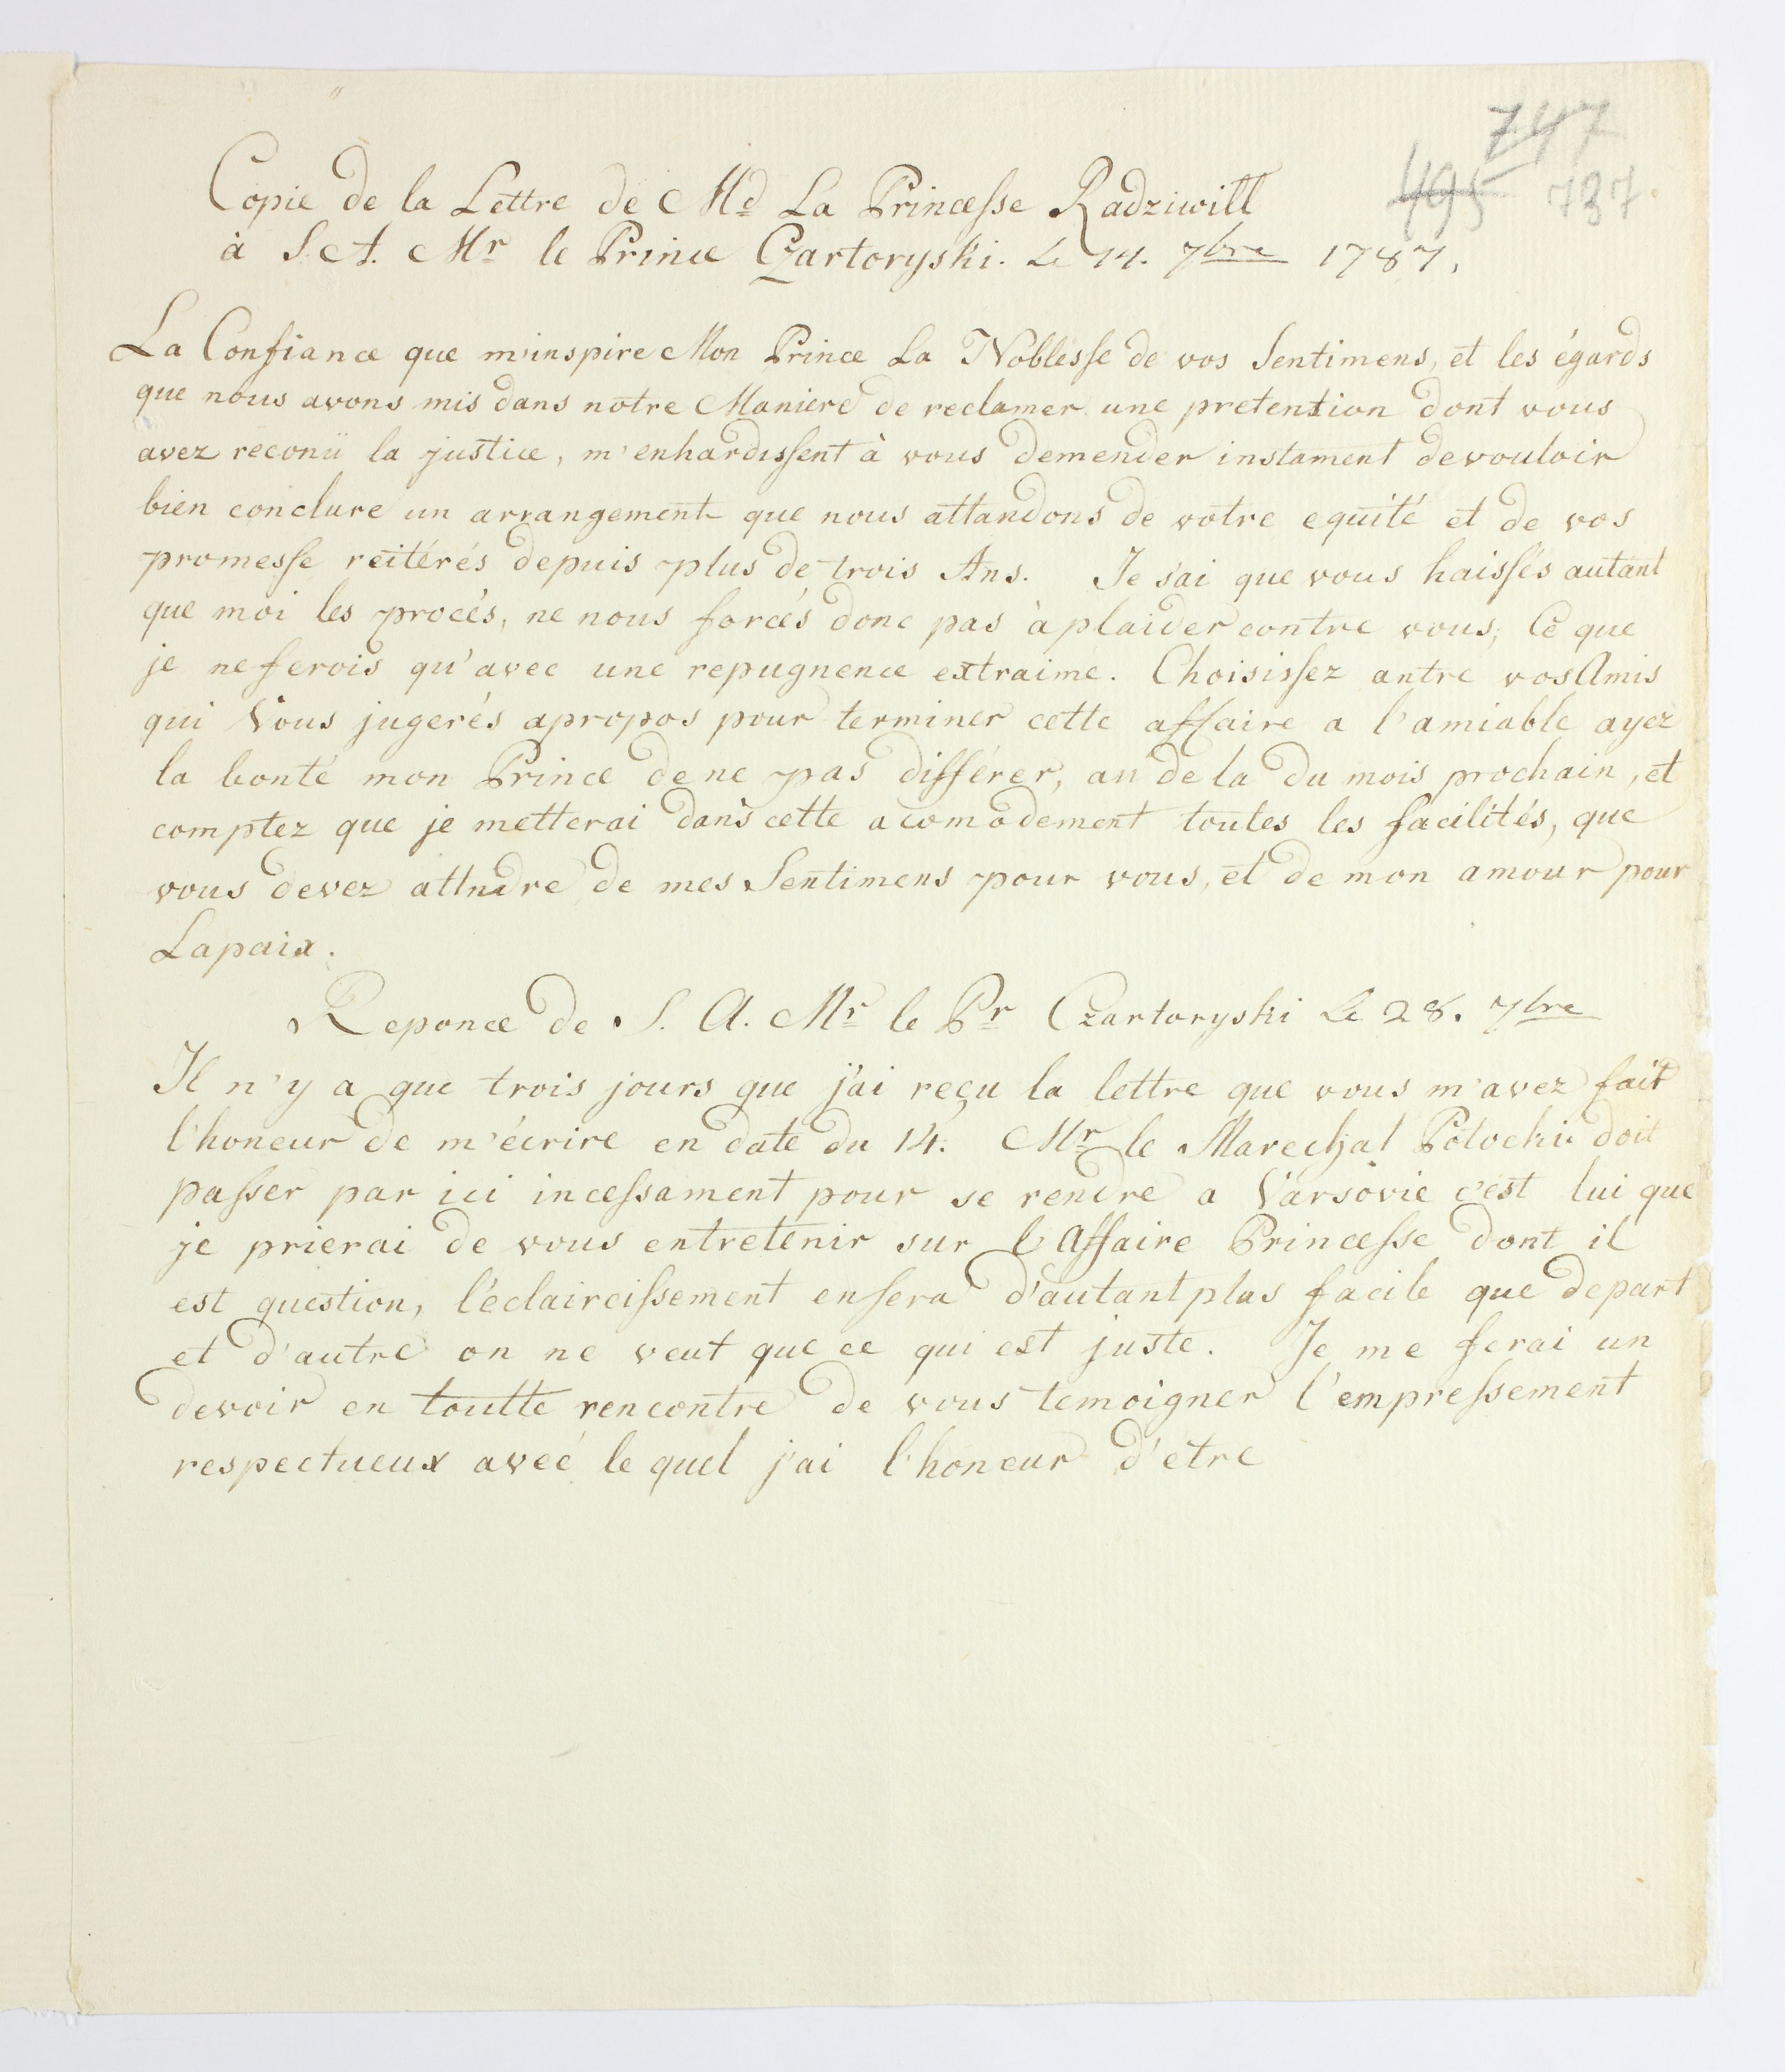 747
495 737.
Copie de la Lettre de Md La Princesse Radziwill
à S A. Mr le Prince Czartoryski. Le 14. 7bre 1787,
La Confiance que m'inspire Mon Prince La Noblesse de vos Sentimens, et les égards
que nous avons mis dans notre Maniere de reclamer une pretention dont vous
avez reconü la justice, m'enhardissent à vous demender instament de vouloir
bien conclure un arrangement que nous attandons de votre equité et de vos
promesse reitérés depuis plus de trois Ans. Je sai que vous haissés autant
que moi les procés, ne nous forcés donc pas à plaider contre vous, Ce que
je ne ferois qu'avec une repugnence extraime. Choisissez antre vos Amis
qui Vous jugerés apropos pour terminer cette affaire a l'amiable ayez
la bonté mon Prince de ne pas différer, au de la du mois prochain, et
comptez que je metterai dans cette acomodement toutes les facilités, que
vous devez attndre de mes Sentimens pour vous, et de mon amour pour
La paix.
Reponce de S. A. Mr le Pr Czartoryski Le 28. 7bre
Il n'y a que trois jours que j'ai reçu la lettre que vous m'avez fait
l'honeur de m'écrire en date du 14. Mr le Marechal Potocki doit
passer par ici incessament pour se rendre a Varsovie c'est lui que
je prierai de vous entretenir sur l'Affaire Princesse dont il
est question, l'éclaircissement en sera d'autant plus facile que de part
et d'autre on ne veut que ce qui est juste. Je me ferai un
devoir en toutte rencontre de vous temoigner l'empressement
respectueux avec le quel j'ai l'honeur d'etre